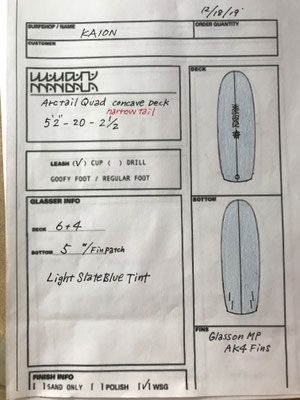 12/18/19'
SURFSHOP / NAME
KAION
ORDER QUANTITY
CUSTOMER
MANDALA
Arctail Quad concave Deck
narrow tail
5'2" - 20 - 2 1/2
LEASH (✓) CUP ( ) DRILL
GOOFY FOOT / REGULAR FOOT
GLASSER INFO
DECK 6+4
BOTTOM 5 w/Finpatch
Light SlateBlue Tint
FINISH INFO
[ ] SAND ONLY [ ] POLISH [✓] WSG
DECK
BOTTOM
FINS
Glasson MP
AK4 Fins